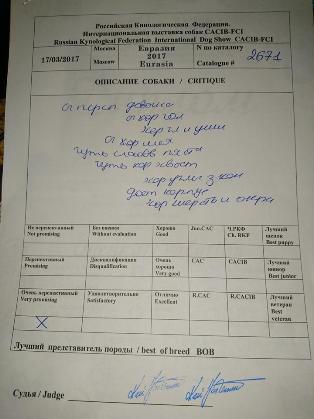 Российская Кинологическая Федерация.
Интернациональная выставка собак CACIB-FCI
Russian Kynological Federation International Dog Show CACIB-FCI
17/03/2017
Москва
Moscow
Евразия
2017
Eurasia
N по каталогу
Catalogue #
2671
ОПИСАНИЕ СОБАКИ / CRITIQUE
хор гл и уши
чуть
чуть кор хвост
хор углы з кон
дост корпус
хор шерсть и окрас
Не перспективный
Not promising
Без оценки
Without evaluation
Хорошо
Good
Jun.CAC
Ч.РКФ
Ch. RKF
Лучший
щенок
Best puppy
Перспективный
Promising
Дисквалификация
Disqualification
Очень
хорошо
Very good
CAC
CACIB
Лучший
юниор
Best junior
Очень перспективный
Very promising
Удовлетворительно
Satisfactory
Отлично
Excellent
R.CAC
R.CACIB
Лучший
ветеран
Best
veteran
X
Лучший представитель породы / best of breed BOB
Судья / Judge